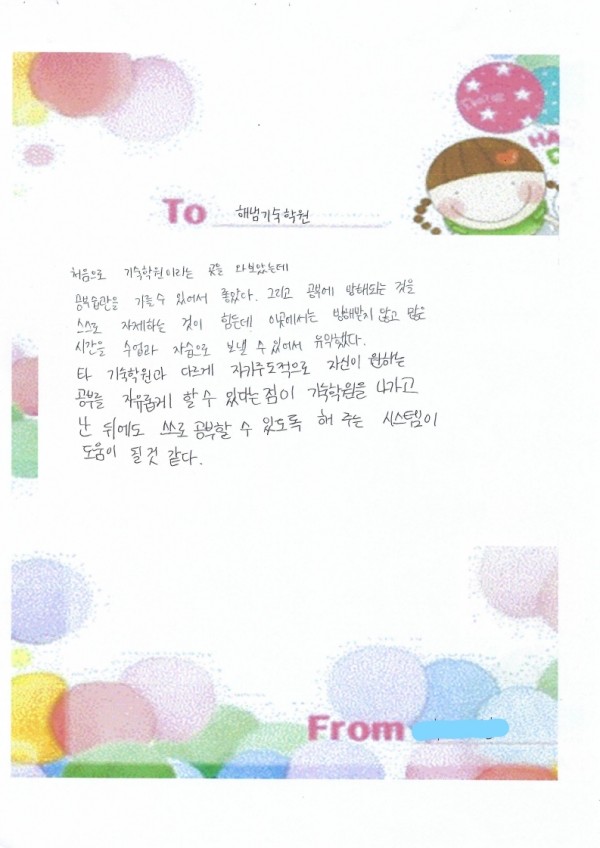 To 해범기숙학원
처음으로 기숙학원이라는 곳을 와보았는데
공부습관을 기를 수 있어서 좋았다. 그리고 공부에 방해되는 것을
스스로 자제하는 것이 힘든데 이곳에서는 방해받지 않고 많은
시간을 수업과 자습으로 보낼 수 있어서 유익했다.
타 기숙학원과 다르게 자기주도적으로 자신이 원하는
공부를 자유롭게 할 수 있다는 점이 기숙학원을 나가고
난 뒤에도 쓰로 공부할 수 있도록 해 주는 시스템이
도움이 될 것 같다.
From